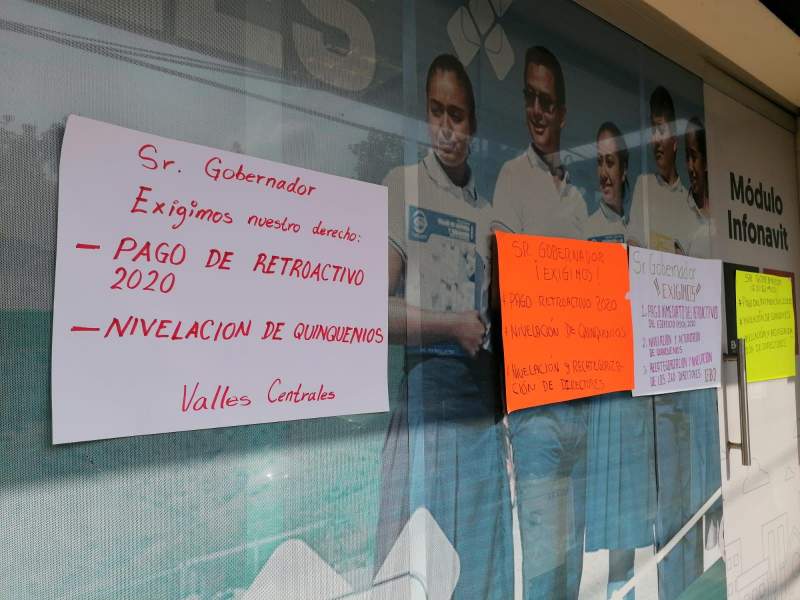 ES
Sr. Gobernador
Exigimos nuestro derecho:
- PAGO DE RETROACTIVO
2020
- NIVELACION DE QUINQUENIOS
Valles Centrales
SR. GOBERNADOR
¡EXIGIMOS!
PAGO RETROACTIVO 2020
NIVELACIÓN DE QUINQUENIOS
NIVELACIÓN Y RECATEGORIZA-
CIÓN DE DIRECTORES
Sr Gobernador
"EXIGIMOS"
1. PAGO INMEDIATO DEL RETROACTIVO
DEL EJERCICIO FISCAL 2020
2. NIVELACIÓN Y
DE QUINQUENIOS
3. RECATEGORIZACIÓN Y NIVELACIÓN
DE LOS 240 DIRECTORES
Módulo
Infonavit
SR. GOBERNADOR
EXIGIMOS